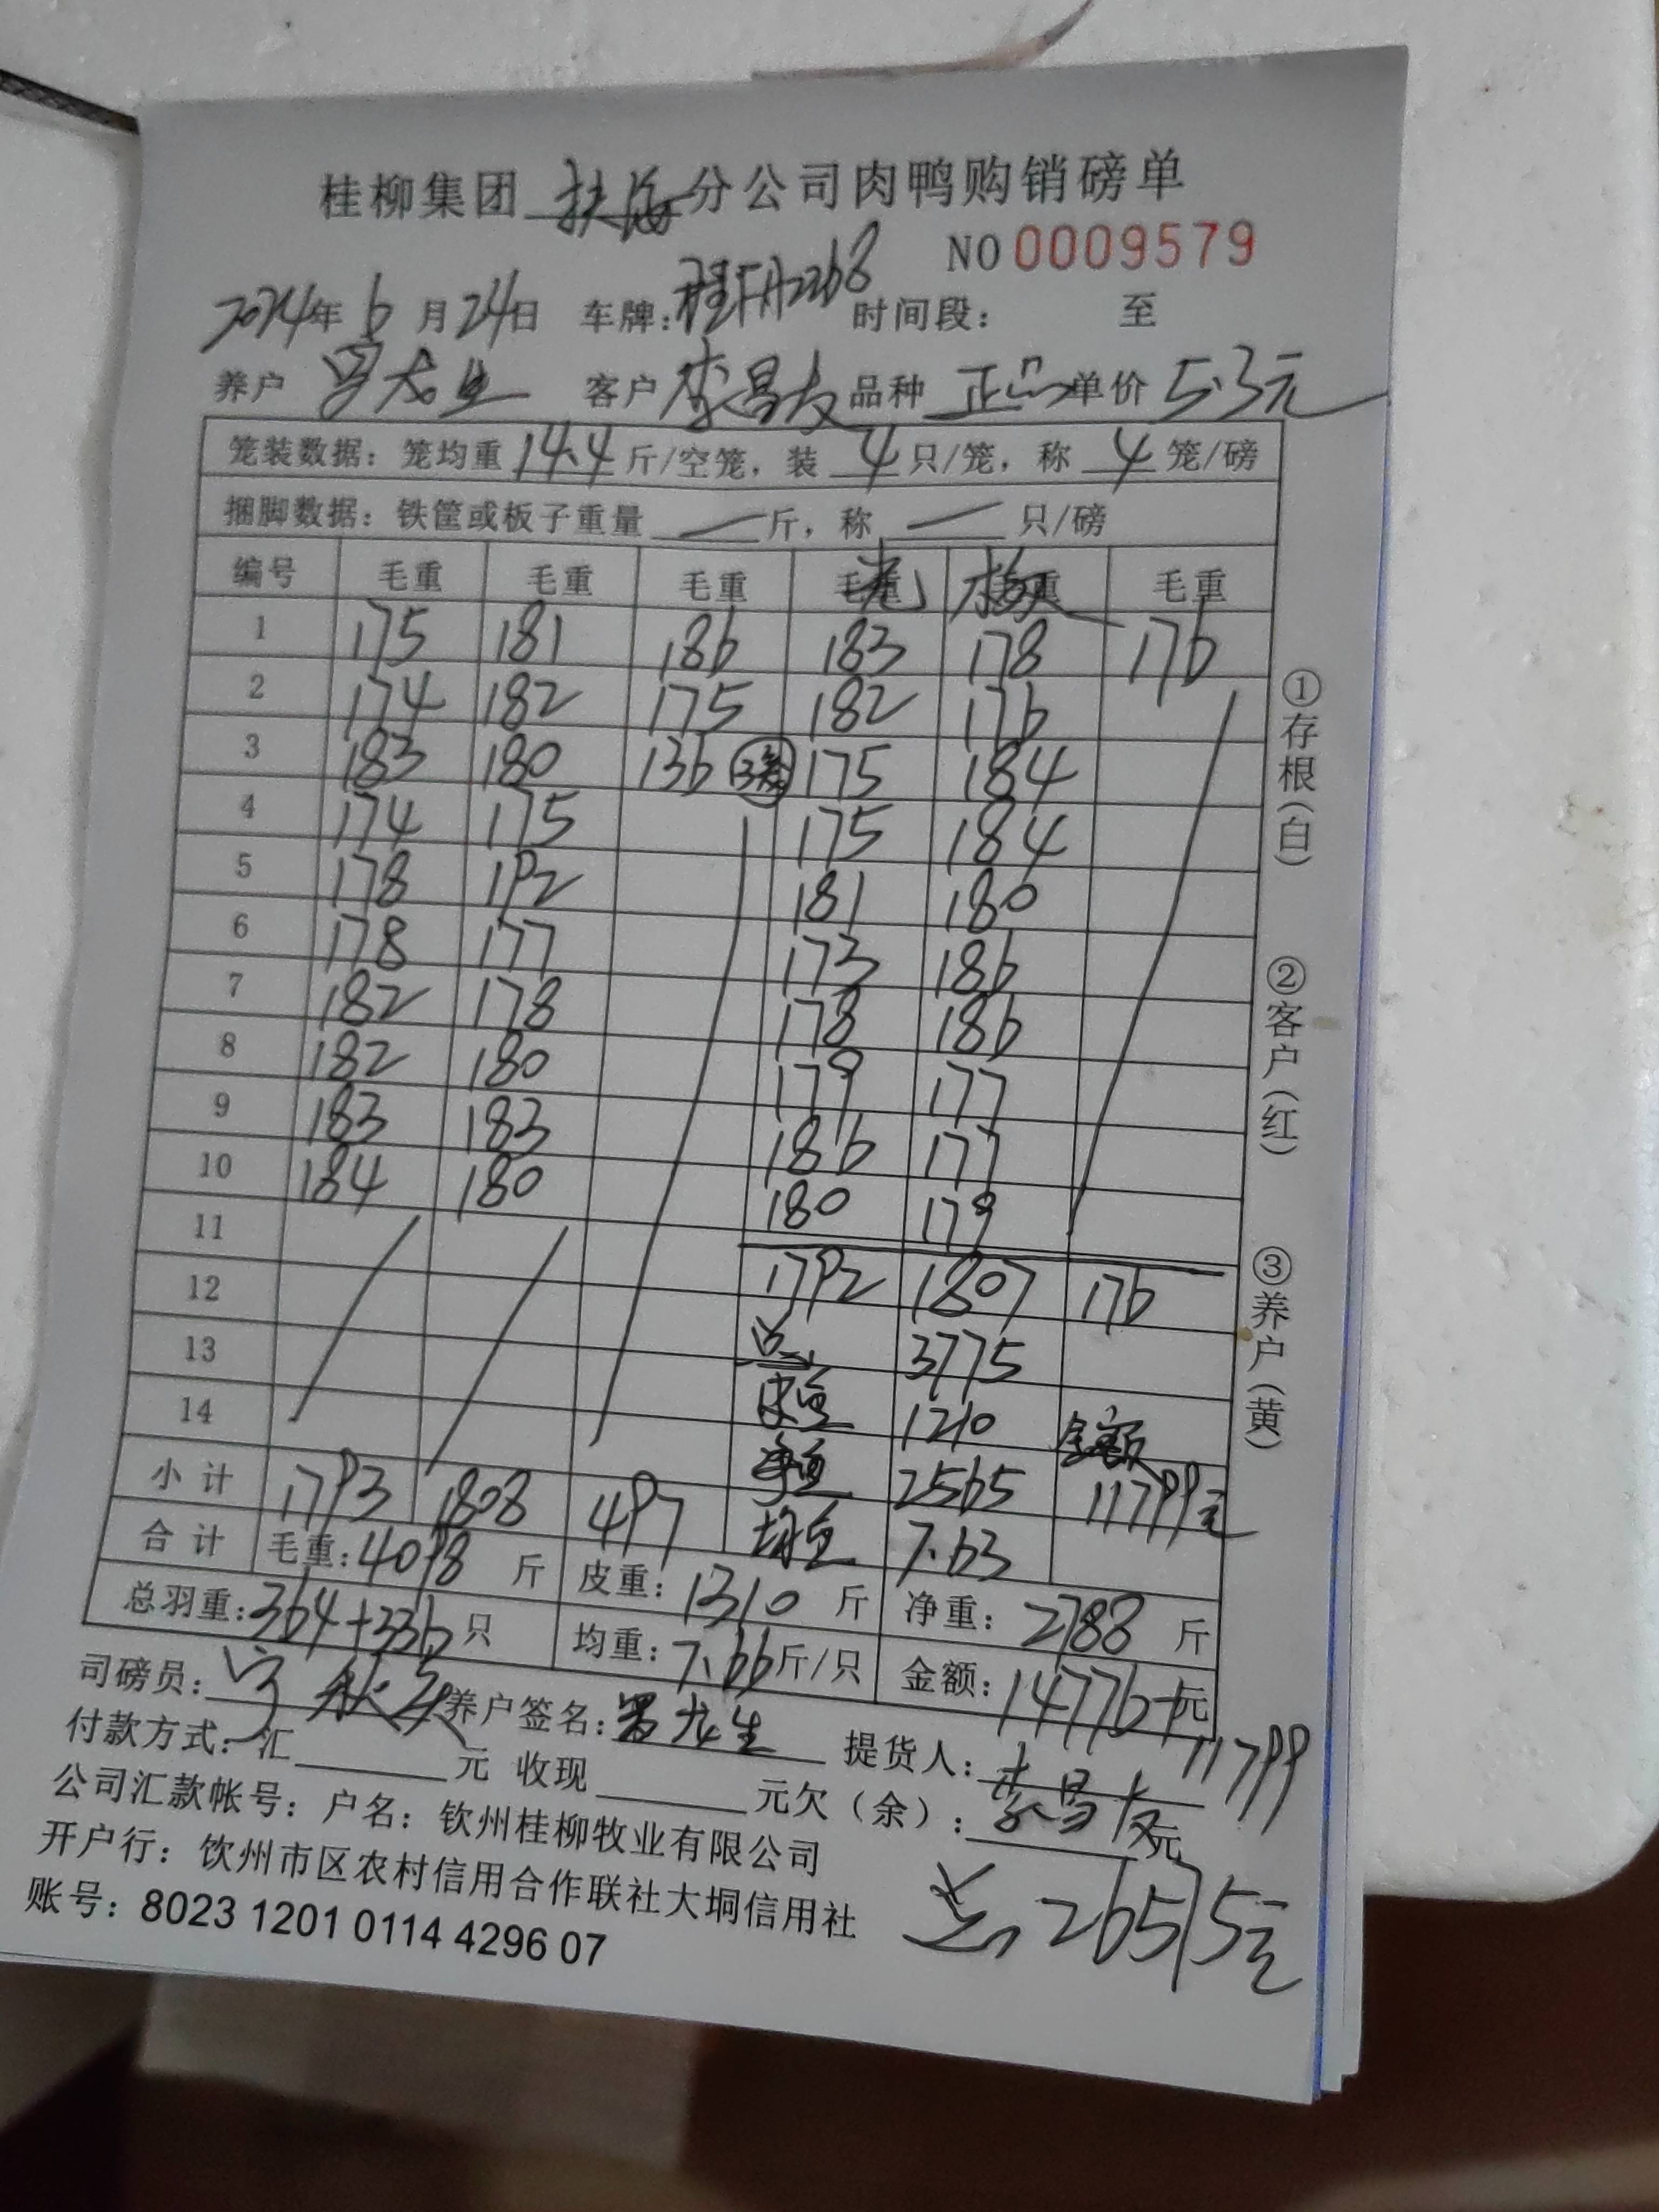 桂柳集团 扶海 分公司肉鸭购销磅单
NO 0009579
2024年 6 月 24日 车牌: 2268 时间段: 至
养户 客户 李昌友 品种 正品 单价 5.3元
笼装数据: 笼均重 14.4 斤/空笼, 装 4 只/笼, 称 4 笼/磅
捆脚数据: 铁筐或板子重量 — 斤, 称 — 只/磅
编号 毛重 毛重 毛重 毛重 毛重 毛重
1 175 181 186 183 178 176
2 174 182 175 182 176
3 183 180 136 175 184
4 174 175 175 184
5 178 192 181 180
6 178 177 173 186
7 182 178 178 186
8 182 180 179 177
9 183 183 186 177
10 184 180 180 179
11
12 1792 1807 176
13 总 3775
14 皮重 1210 金额
小计 1793 1808 497 净重 2565 11799元
均重 7.63
合计 毛重: 4098 斤 皮重: 1310 斤 净重: 2788 斤
总羽重: 364+336 只 均重: 7.66 斤/只 金额: 14776+元
11799
司磅员: 养户签名: 罗龙生 提货人: 李昌友
付款方式: 汇 元 收现 元欠(余): 元
公司汇款帐号: 户名: 钦州桂柳牧业有限公司
开户行: 饮州市区农村信用合作联社大垌信用社
账号: 8023 1201 0114 4296 07
总 26575元
①存根(白)
②客户(红)
③养户(黄)